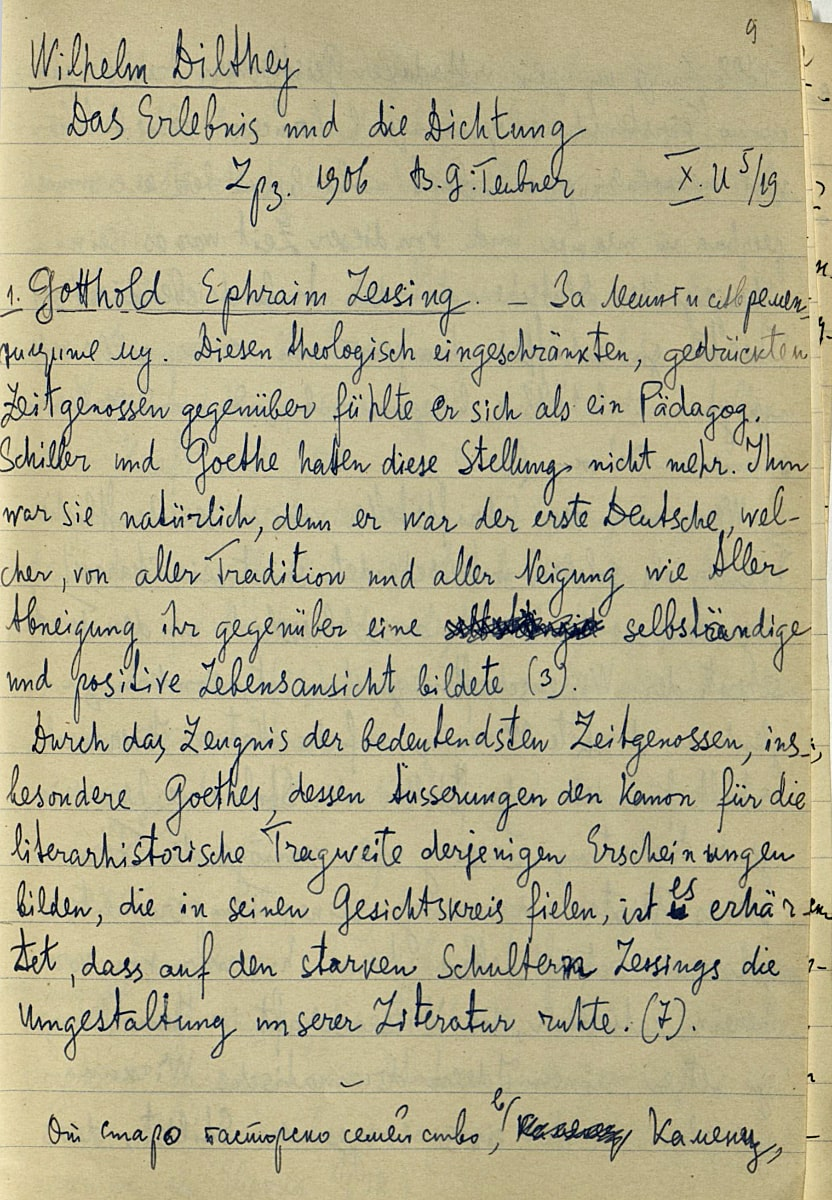 9
Wilhelm Dilthey
Das Erlebnis und die Dichtung
Lpz. 1906 B. G. Teubner X. U 5/19
1. Gotthold Ephraim Lessing. – За и съвремен-
ниците му. Diesen theologisch eingeschränkten, gedrückten
Zeitgenossen gegenüber fühlte er sich als ein Pädagog.
Schiller und Goethe hatten diese Stellung nicht mehr. Ihm
war sie natürlich, denn er war der erste Deutsche, wel-
cher, von aller Tradition und aller Neigung wie aller
Abneigung ihr gegenüber eine selbständige
und positive Lebensansicht bildete (3).
Durch das Zeugnis der bedeutendsten Zeitgenossen, ins-
besondere Goethes, dessen Äusserungen den Kanon für die
literarhistorische Tragweite derjenigen Erscheinungen
bilden, die in seinen Gesichtskreis fielen, ist es erhär-
tet, dass auf den starken Schultern Lessings die
Umgestaltung unserer Literatur ruhte. (7).
От старо пасторско семейство, в Каменц,